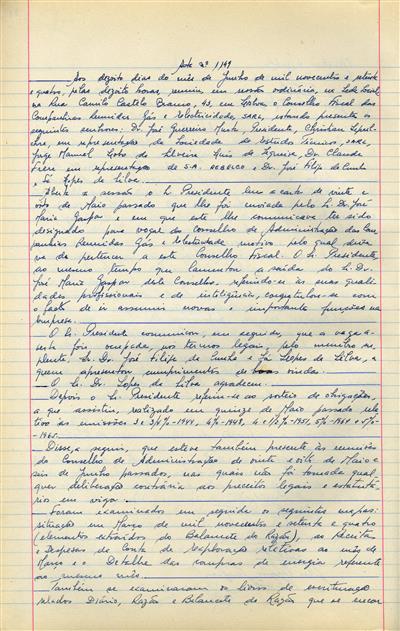 Acta nº 1169
Aos dezoito dias do mês de Junho de mil novecentos e setenta
e quatro, pelas dezoito horas, reuniu em sessão ordinária, na Sede Social
na Rua Camilo Castelo Branco, 43, em Lisboa o Conselho Fiscal das
Companhias Reunidas Gás e Electricidade, SARL, estando presentes os
seguintes senhores: Dr. José Guerreiro Murta, Presidente, Christian
em representação da Sociedade de Estudos Técnicos, SARL,
Jorge Manuel Lobo da Silveira de Figueira, Dr. Claude
Frère em representação de S.A. e Dr. José Filipe da Cunha
e Sá Lopes da Silva.
Aberta a sessão o Sr. Presidente leu a carta de vinte e
oito de Maio passado que lhe foi enviada pelo Sr. Dr. José
Maria Gaspar e em que este lhe comunicava ter sido
designado para vogal do Conselho de Administração das Com-
panhias Reunidas Gás e Electricidade motivo pelo qual deixa-
va de pertencer a este Conselho Fiscal. O Sr. Presidente
ao mesmo tempo que lamentou a saída do Sr. Dr.
José Maria Gaspar deste Conselho, referindo-se às suas quali-
dades profissionais e de inteligência, congratulou-se com
o facto de ir assumir novas e importantes funções na
empresa.
O Sr. Presidente comunicou, em seguida, que a vaga a-
berta foi ocupada, nos termos legais, pelo membro su-
plente, Sr. Dr. José Filipe da Cunha e Sá Lopes da Silva, a
quem apresentou cumprimentos de boas vindas.
O Sr. Dr. Lopes da Silva agradeceu.
Depois o Sr. Presidente referiu-se ao sorteio de obrigações,
a que assistiu, realizado em quinze de Maio passado rela-
tivo às emissões 3 e 3½%-1944, 4%-1948, 4 e 1/2%-1951, 5%-1960 e 5%-
-1965.
Disse, a seguir, que esteve também presente, às reuniões
do Conselho de Administração de vinte e oito de Maio e
seis de Junho passados, nas quais não foi tomada qual-
quer deliberação contrária aos preceitos legais e estatutá-
rios em vigor.
Foram examinados em seguida os seguintes mapas:
situação em Março de mil novecentos e setenta e quatro
(elementos extraídos do Balancete do Razão), as Receitas
e Despesas da Conta de Exploração relativas ao mês de
Março e o Detalhe das compras de energia referente
ao mesmo mês.
Também se examinaram os livros de escrituração
selados Diário, Razão e Balancete do Razão que se encon-